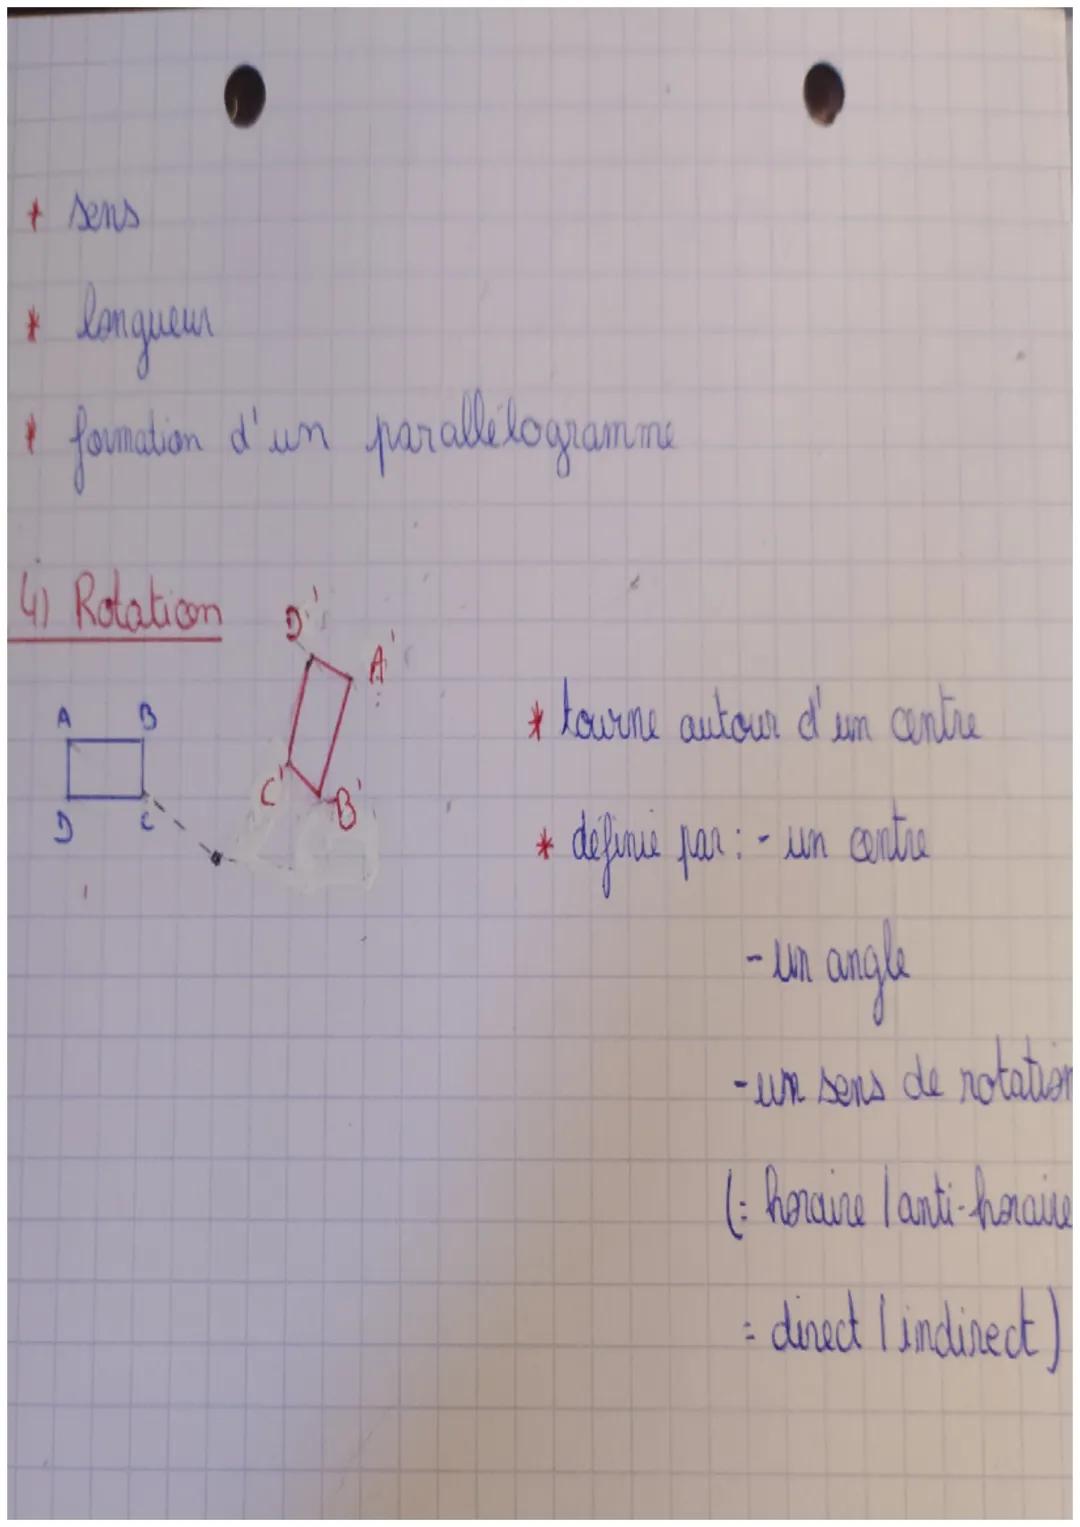 * sens
* longueur
* formation d'un parallélogramme
4) Rotation
D'
A'
A B
C'
B'
D C
* tourne autour d'un centre
* définie par : - un centre
- un angle
- un sens de rotation
(= horaire / anti-horaire
= direct / indirect)